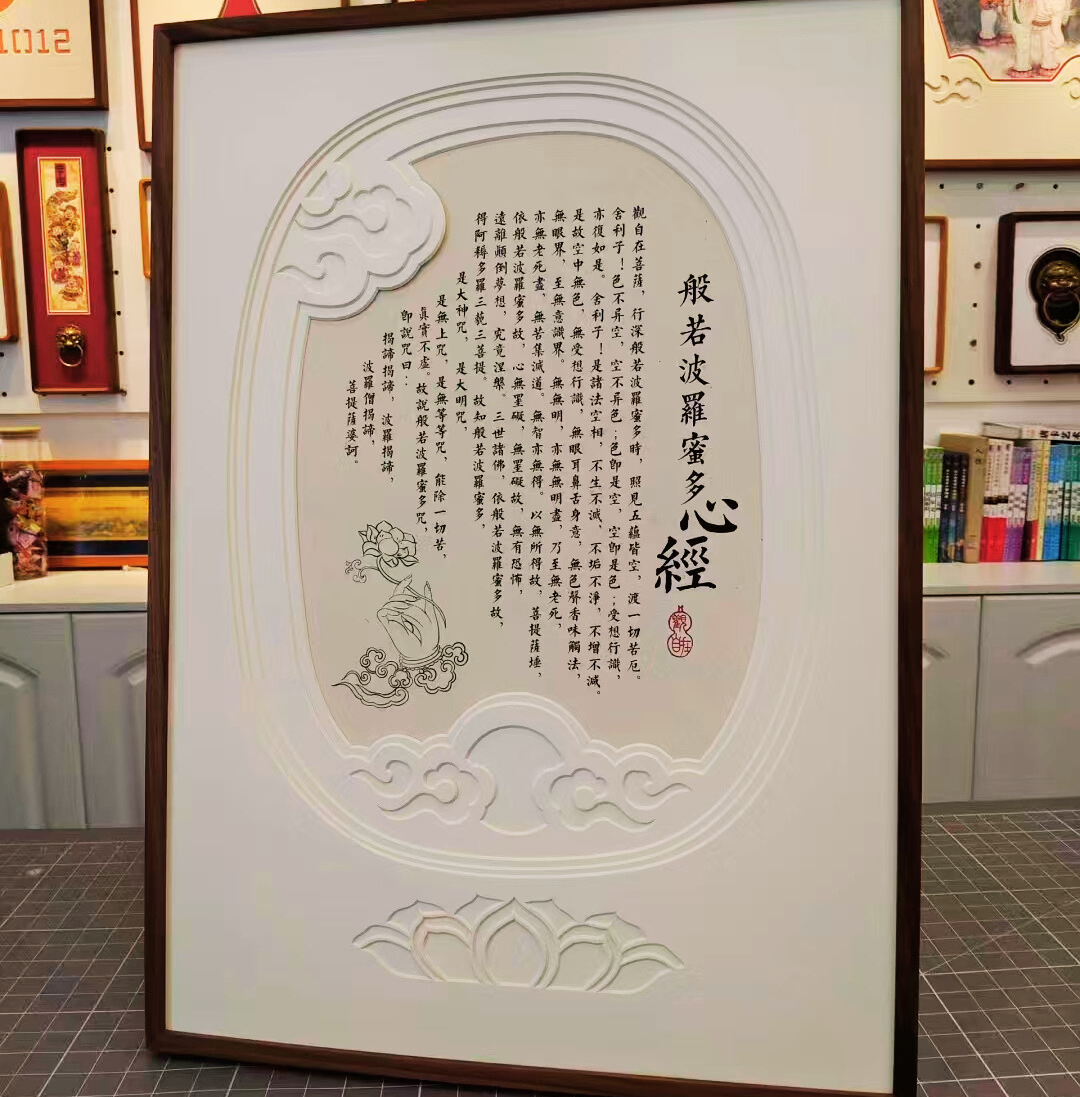 般若波羅蜜多心經
觀自在
觀自在菩薩，行深般若波羅蜜多時，照見五蘊皆空，渡一切苦厄。
舍利子！色不异空，空不异色；色卽是空，空卽是色；受想行識，
亦復如是。舍利子！是諸法空相，不生不滅，不垢不淨，不增不減。
是故空中無色，無受想行識，無眼耳鼻舌身意，無色聲香味觸法，
無眼界，至無意識界。無無明，亦無無明盡，乃至無老死，
亦無老死盡，無苦集滅道。無智亦無得。以無所得故，菩提薩埵，
依般若波羅蜜多故，心無罣礙，無罣礙故，無有恐怖，
遠離顛倒夢想，究竟涅槃。三世諸佛，依般若波羅蜜多故，
得阿耨多羅三藐三菩提。故知般若波羅蜜多，
是大神咒，是大明咒，
是無上咒，是無等等咒，能除一切苦，
真實不虛。故說般若波羅蜜多咒，
卽說咒曰：
揭諦揭諦，波羅揭諦，
波羅僧揭諦，
菩提薩婆訶。
1012